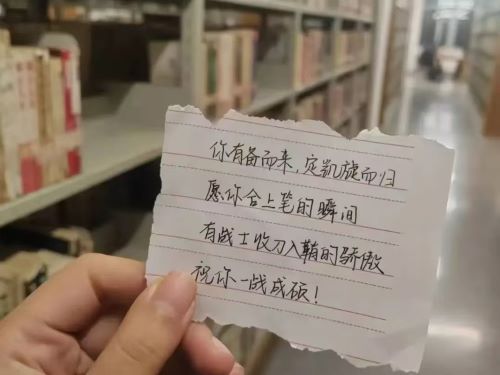 你有备而来,定凯旋而归
愿你合上笔的瞬间
有战士收刀入鞘的骄傲
祝你一战成硕!